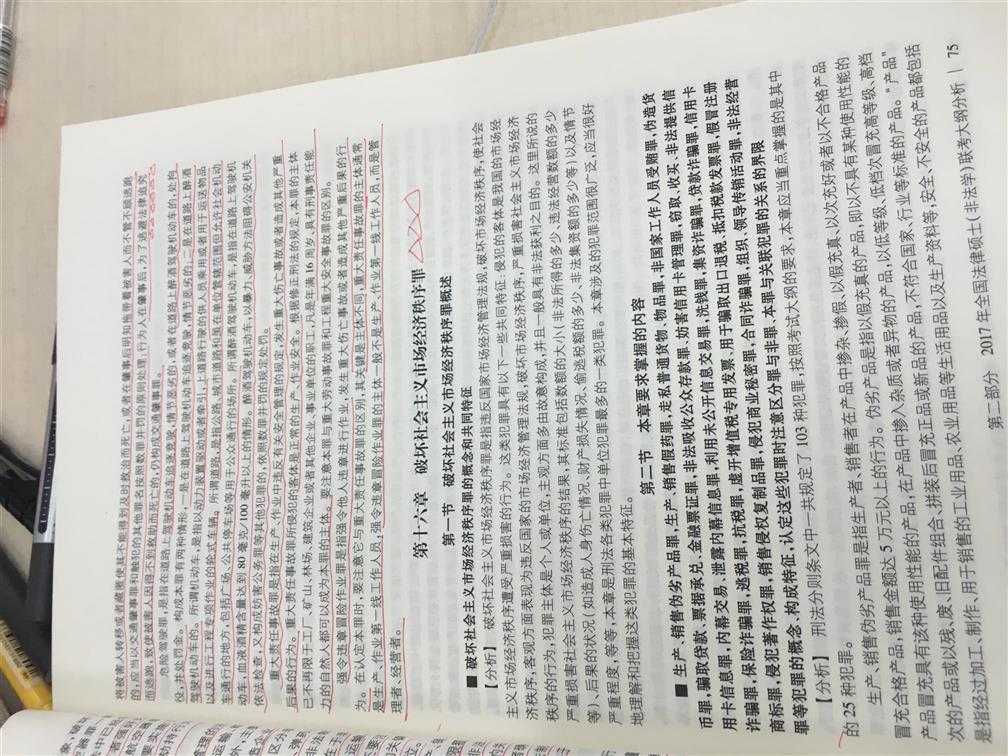 将被害人转移或者藏匿使其不能得到及时救治而死亡,或者在肇事后明知拖带着被害人而不管不顾逃跑
的,应当以交通肇事罪和触犯的其他罪名按照数罪并罚的原则处理,行为人在肇事后,为了逃避法律追究
而逃跑,致使被害人因得不到救助而死亡的,仍构成交通肇事罪。
危险驾驶罪,是指在道路上驾驶机动车追逐竞驶,情节恶劣的,或者在道路上醉酒驾驶机动车的,处拘
役,并处罚金。构成本罪有两种情形,一是在道路上驾驶机动车追逐竞驶,情节恶劣的;二是在道路上醉酒
驾驶机动车的。所谓机动车,是指以动力装置驱动或者牵引,上道路行驶的供人员乘用或者用于运送物品
以及进行工程专项作业的轮式车辆。所谓道路,是指公路、城市道路和虽在单位管辖范围但允许社会机动
车通行的地方,包括广场、公共停车场等用于公众通行的场所。所谓醉酒驾驶机动车,是指在道路上驾驶机
动车,血液酒精含量达到 80 毫克/100 毫升以上的行为。醉酒驾驶机动车,以暴力、威胁方法阻碍公安机关
依法检查,又构成妨害公务罪等其他犯罪的,依照数罪并罚的规定处罚。
重大责任事故罪是指在生产、作业中违反有关安全管理的规定,发生重大伤亡事故或者造成其他严重
后果的行为。重大责任事故罪所侵犯的客体是正常的生产、作业安全。根据修正刑法的规定,本罪的主体
已不再限于工厂、矿山、林场、建筑企业或者其他企业、事业单位的职工,凡是年满 16 周岁,具有刑事责任能
力的自然人都可以成为本罪的主体。要注意本罪与重大劳动事故罪和工程重大安全事故罪的区别。
强令违章冒险作业罪是指强令他人违章进行作业,发生重大伤亡事故或者造成其他严重后果的行
为。在认定本罪时,要注意它与重大责任事故罪的区别,其关键是主体不同,重大责任事故罪的主体通常
是生产、作业第一线工作人员,强令违章冒险作业罪的主体一般不是生产、作业第一线工作人员,而是管
理者、经营者。
第十六章 破坏社会主义市场经济秩序罪
第一节 破坏社会主义市场经济秩序罪概述
■ 破坏社会主义市场经济秩序罪的概念和共同特征
【分析】 破坏社会主义市场经济秩序罪是指违反国家市场经济管理法规,破坏市场经济秩序,使社会
主义市场经济秩序遭受严重损害的行为。这类犯罪具有以下一些共同特征,侵犯的客体是我国的市场经
济秩序,客观方面表现为违反国家的市场经济管理法规,破坏市场经济秩序,严重损害社会主义市场经济
秩序的行为,犯罪主体是个人或单位,主观方面多由故意构成,并且一般具有非法获利之目的。这里所说的
严重损害社会主义市场经济秩序的结果,其标准包括数额的大小(非法所得的多少、违法经营数额的多少
等)、后果的状况(如造成人身伤亡情况、财产损失情况、偷逃税额的多少、非法集资额的多少等)以及情节
严重程度,等等,本章是刑法各类犯罪中单位犯罪最多的一类犯罪。本章涉及的犯罪范围很广泛,应当很好
地理解和把握这类犯罪的基本特征。
第二节 本章要求掌握的内容
■ 生产、销售伪劣产品罪,生产、销售假药罪,走私普通货物、物品罪,非国家工作人员受贿罪,伪造货
币罪,骗取贷款、票据承兑、金融票证罪,非法吸收公众存款罪,妨害信用卡管理罪,窃取、收买、非法提供信
用卡信息罪,内幕交易、泄露内幕信息罪,利用未公开信息交易罪,洗钱罪,集资诈骗罪,贷款诈骗罪,信用卡
诈骗罪,保险诈骗罪,逃税罪,抗税罪,虚开增值税专用发票、用于骗取出口退税、抵扣税款发票罪,假冒注册
商标罪,侵犯著作权罪,销售侵权复制品罪,侵犯商业秘密罪,合同诈骗罪,组织、领导传销活动罪,非法经营
罪等犯罪的概念、构成特征,认定这些犯罪时注意区分罪与非罪、本罪与关联犯罪的关系的界限
【分析】 刑法分则条文中一共规定了 103 种犯罪,按照考试大纲的要求,本章应当重点掌握的是其中
的 25 种犯罪。
生产、销售伪劣产品罪是指生产者、销售者在产品中掺杂、掺假,以假充真,以次充好或者以不合格产品
冒充合格产品,销售金额达 5 万元以上的行为。伪劣产品是指以假充真的产品,即以不具有某种使用性能的
产品冒充具有该种使用性能的产品,在产品中掺入杂质或者异物的产品,以低等级、低档次冒充高等级、高档
次的产品或以残、废、旧配件组合、拼装后冒充正品或新品的产品,不符合国家、行业等标准的产品。"产品"
是指经过加工、制作、用于销售的工业用品、农业用品等生活用品以及生产资料等,安全、不安全的产品都包括
第二部分 2017年全国法律硕士(非法学)联考大纲分析 | 75